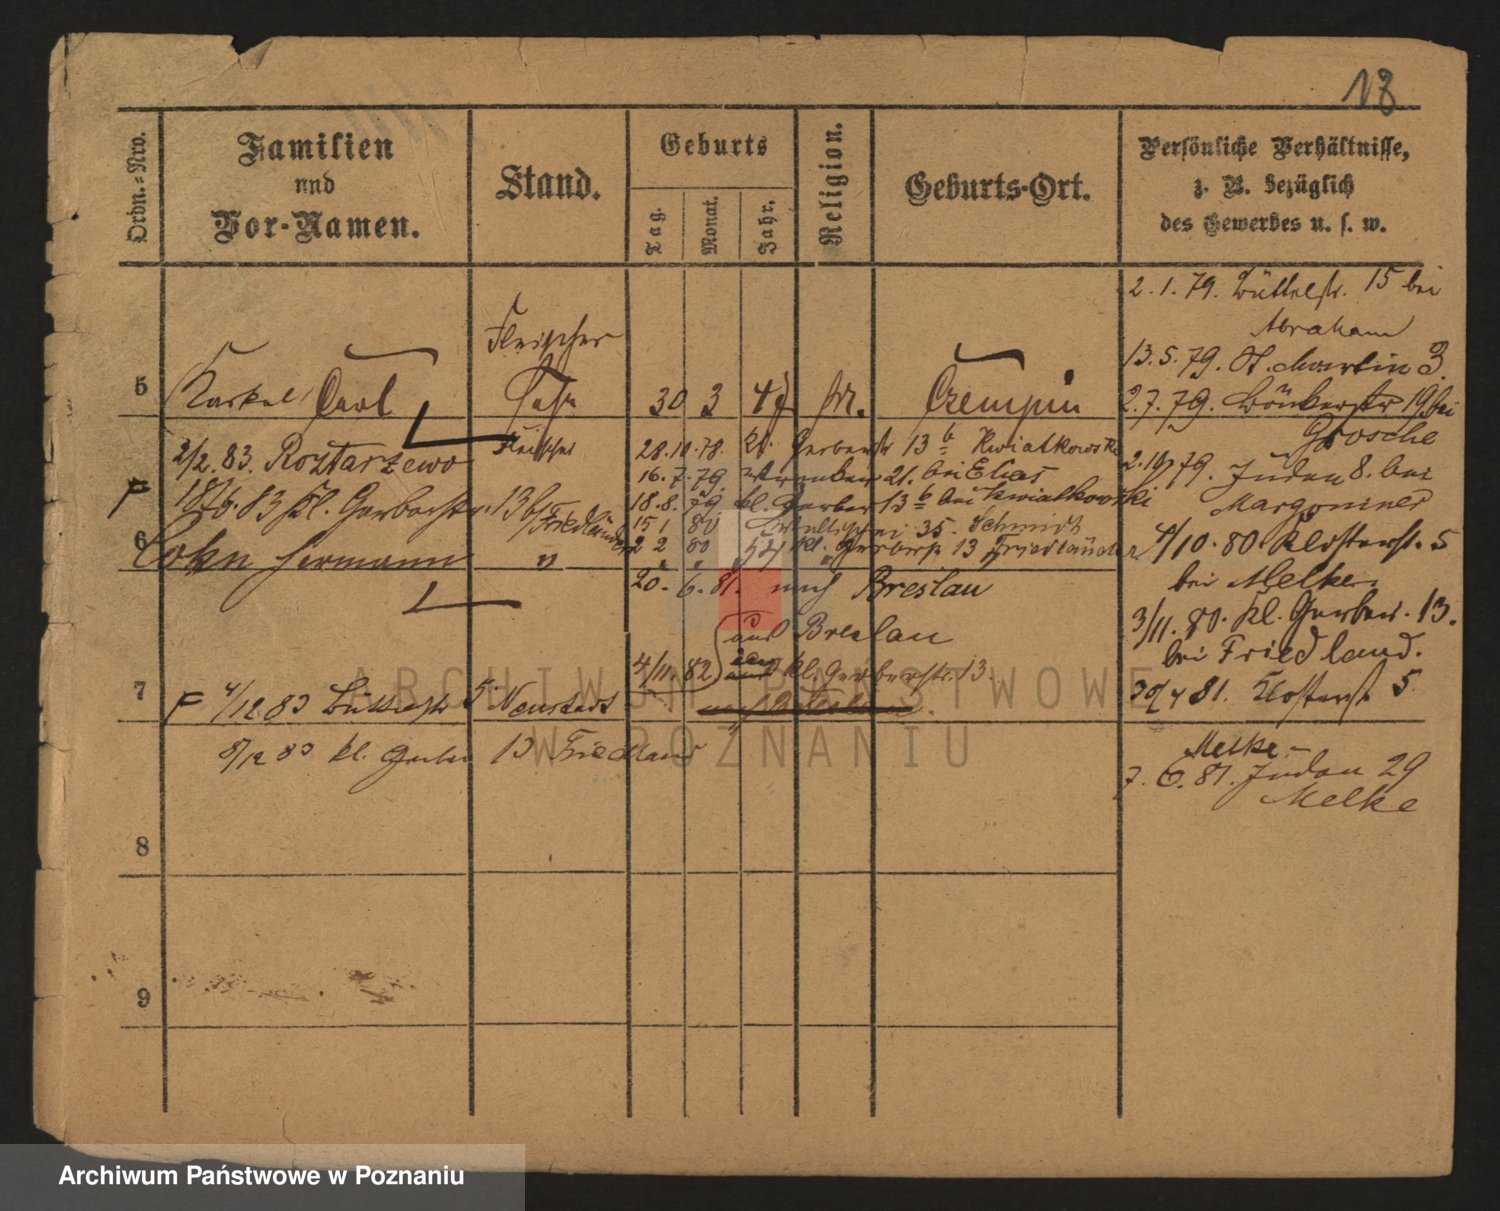 18
Ordn.-Nro.
Familien
und
Vor-Namen.
Stand.
Geburts
Tag.
Monat.
Jahr.
Religion.
Geburts-Ort.
Persönliche Verhältnisse,
z. B. bezüglich
des Gewerbes u. s. w.
2.1.79. Büttelstr. 15 bei
Abraham
Fleischer
13.5.79. St. Martin 3.
5 Karkel Carl 30 3 Czempin
2.7.79. 19 bei
Grosche
2/2.83. Roztarzewo Fleischer
28.10.78. Kl. Gerberstr 13 b Kwiatkowski
16.7.79. 21. bei Elias
2.10/79. Juden 8. bei
Margoniner
F 18/6.83 Kl. Gerberstr. 13 b/ Friedländer
18.8.79 kl. Gerber 13 b bei Kwiatkowski
15 1 80 35 Schmidt
6 Cohn Hermann "
2 2 80 kl. Gerberstr 13 Friedländer
4/10.80. Klosterstr. 5
bei Melke
20. 6. 81. nach Breslau
3/11.80. Kl. Gerber. 13.
bei Friedland.
aus Breslau
4/11 82 kl. Gerberstr. 13.
30/4 81. Klosterstr 5
7
F 4/12 83 Büttelstr 5. Neustadt
nach Breslau.
Melke
8/12 83 kl. Gerber 13 Friedland
7.6.81. Juden 29
Melke
8
9
ARCHIWUM PAŃSTWOWE
W POZNANIU
Archiwum Państwowe w Poznaniu